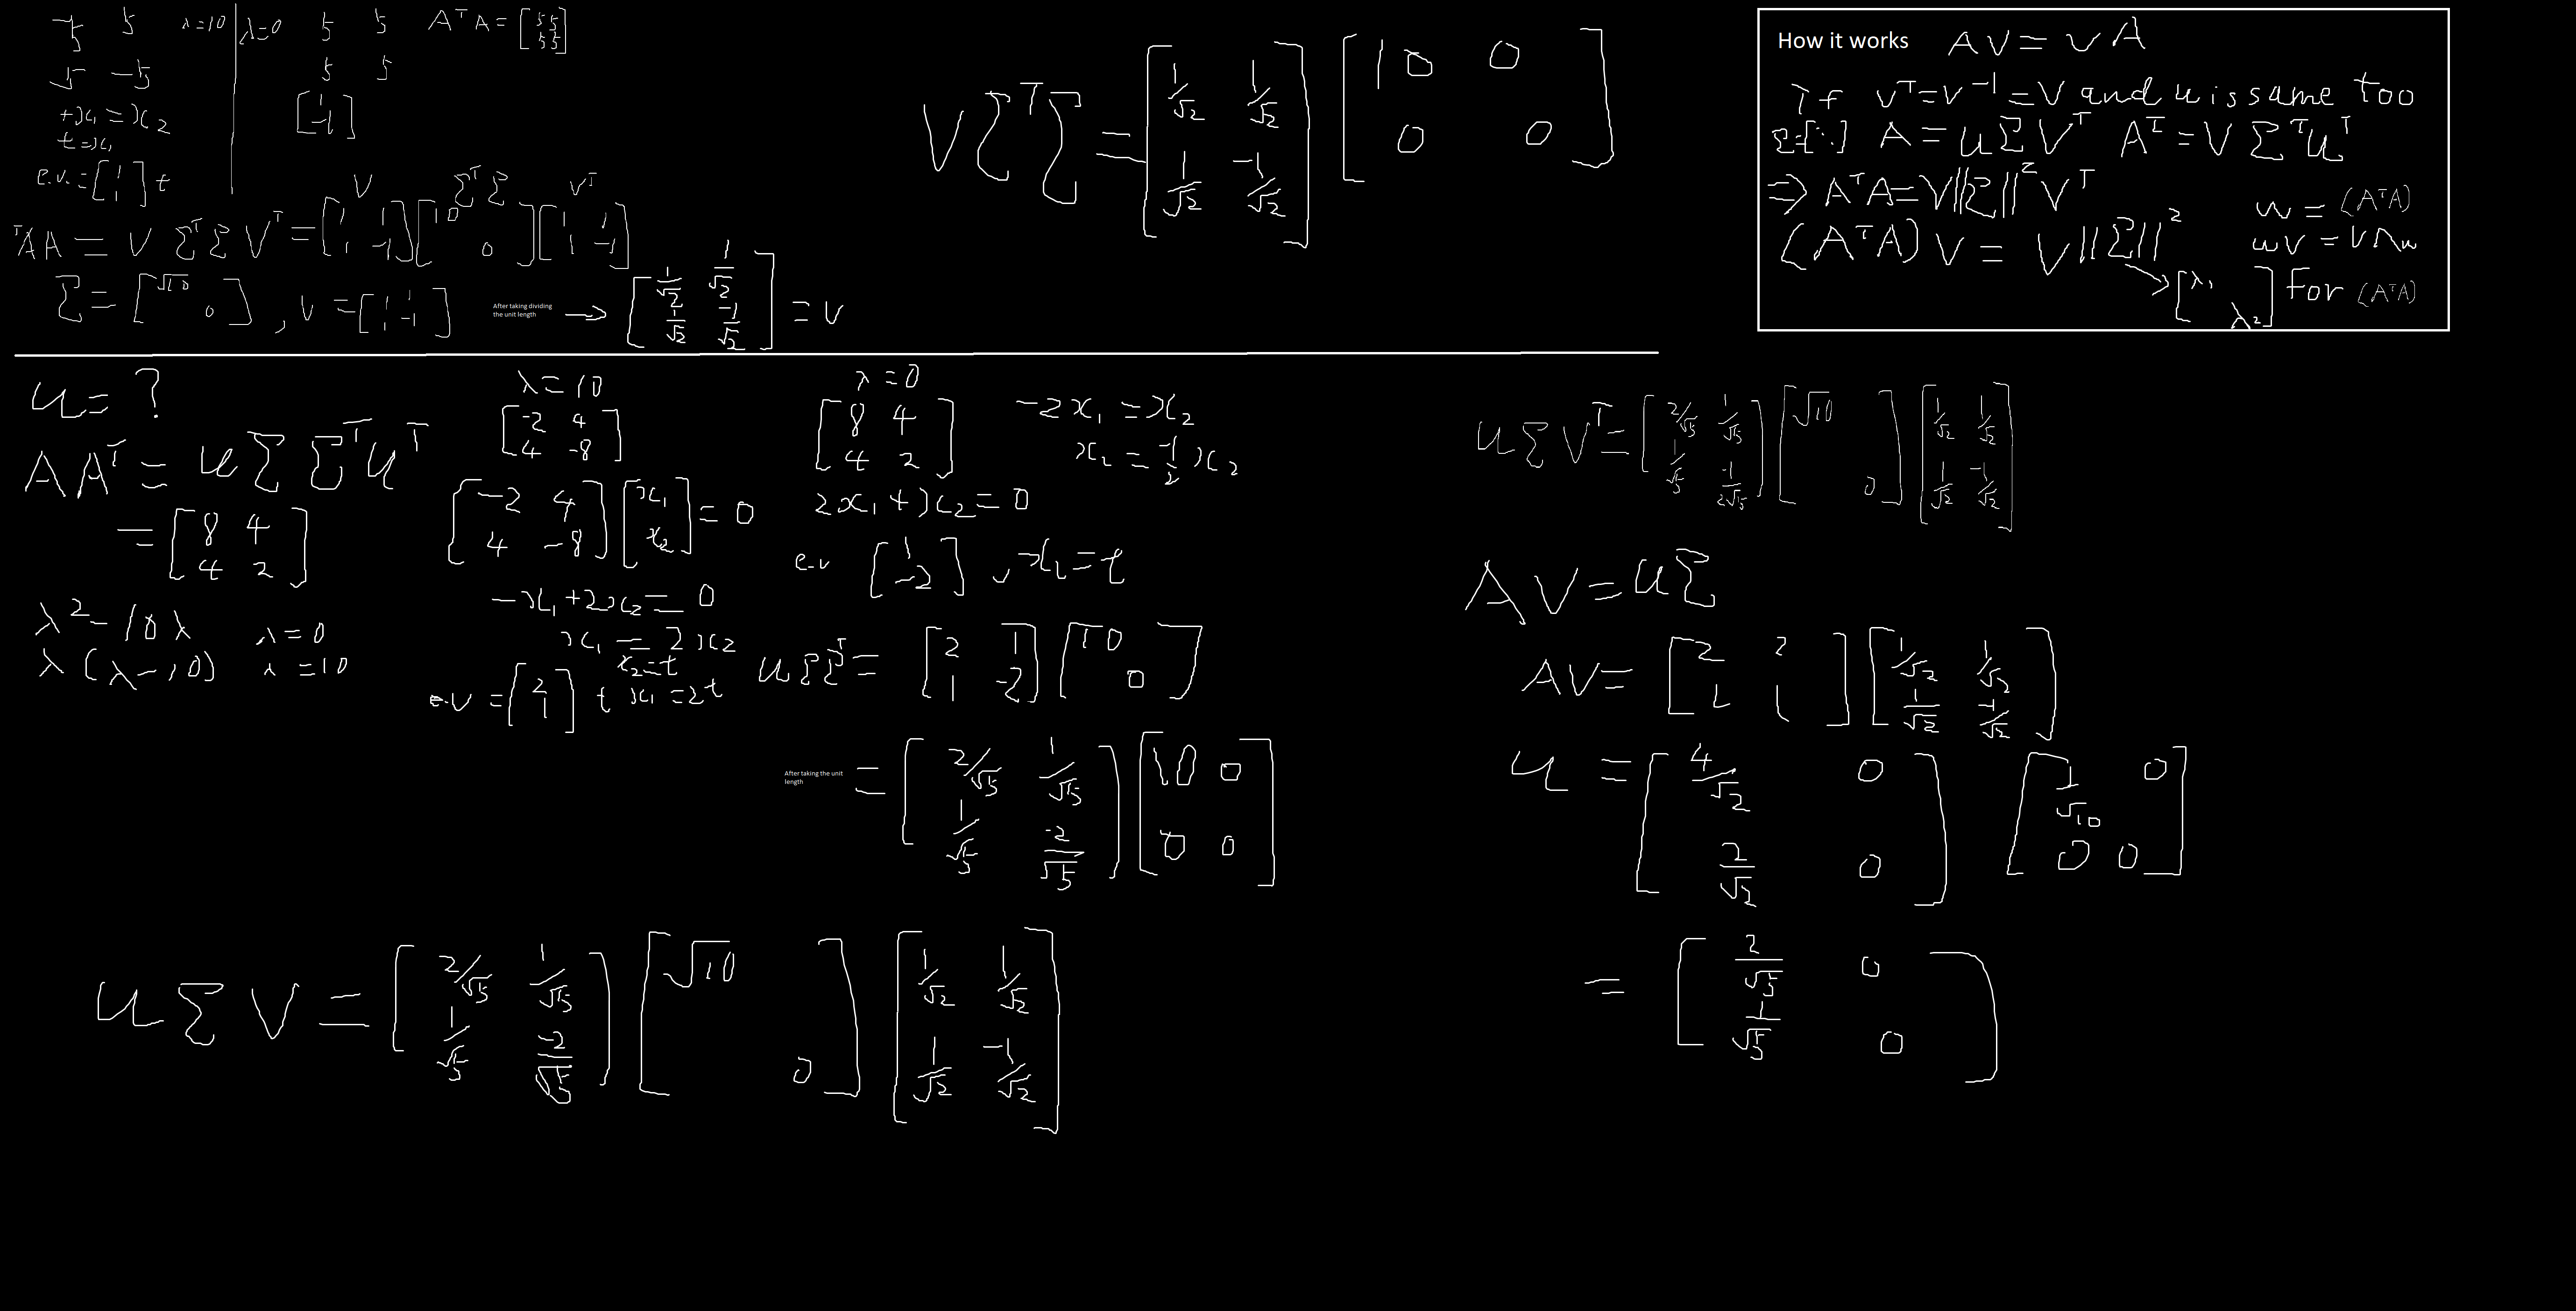 -5 5 λ=10 | λ=0 5 5 AᵀA = [5 5; 5 5]
5 -5 5 5
+x₁ = x₂ [1; -1]
t = x₁
e.v. = [1; 1] t
ᵀAA = V ΣᵀΣ Vᵀ = [1 1; 1 -1] [10 ; 0] [1 1; 1 -1]
V ΣᵀΣ Vᵀ
Σ = [√10 ; 0], v = [1 1; 1 -1]
After taking dividing
the unit length
→ [1/√2 1/√2; 1/√2 -1/√2] = v
VΣᵀΣ = [1/√2 1/√2; 1/√2 -1/√2] [10 0; 0 0]
How it works AV = VΛ
If Vᵀ=V⁻¹=V and u is same too
Σ=[⋱] A = UΣVᵀ Aᵀ = VΣᵀUᵀ
⇒ AᵀA = V||Σ||²Vᵀ
w = (AᵀA)
(AᵀA)V = V||Σ||²
wV = VΛw
→ [λ₁ ; λ²] for (AᵀA)
u = ?
AAᵀ = uΣΣᵀuᵀ
= [8 4; 4 2]
λ² - 10λ λ=0
λ(λ-10) λ=10
λ = 10
[-2 4; 4 -8]
[-2 4; 4 -8] [x₁; x₂] = 0
-x₁ + 2x₂ = 0
x₁ = 2x₂
x₂ = t
e.v = [2; 1] t x₁ = 2t
λ = 0
[8 4; 4 2] -2x₁ = x₂
x₂ = -1/2 x₂
2x₁ + x₂ = 0
e.v [1; -2], x₁ = t
uΣΣᵀ = [2 1; 1 -2] [10 ; 0]
After taking the unit
length
= [2/√5 1/√5; 1/√5 -2/√5] [10 0; 0 0]
UΣV = [2/√5 1/√5; 1/√5 -2/√5] [√10 ; 0] [1/√2 1/√2; 1/√2 -1/√2]
uΣVᵀ = [2/√5 1/√5; 1/√5 -1/2√5] [√10 ; 0] [1/√2 1/√2; 1/√2 -1/√2]
AV = uΣ
AV = [2 2; 1 1] [1/√2 1/√2; 1/√2 -1/√2]
u = [4/√2 0; 2/√2 0] [1/√10 0; 0 0]
= [2/√5 0; 1/√5 0]